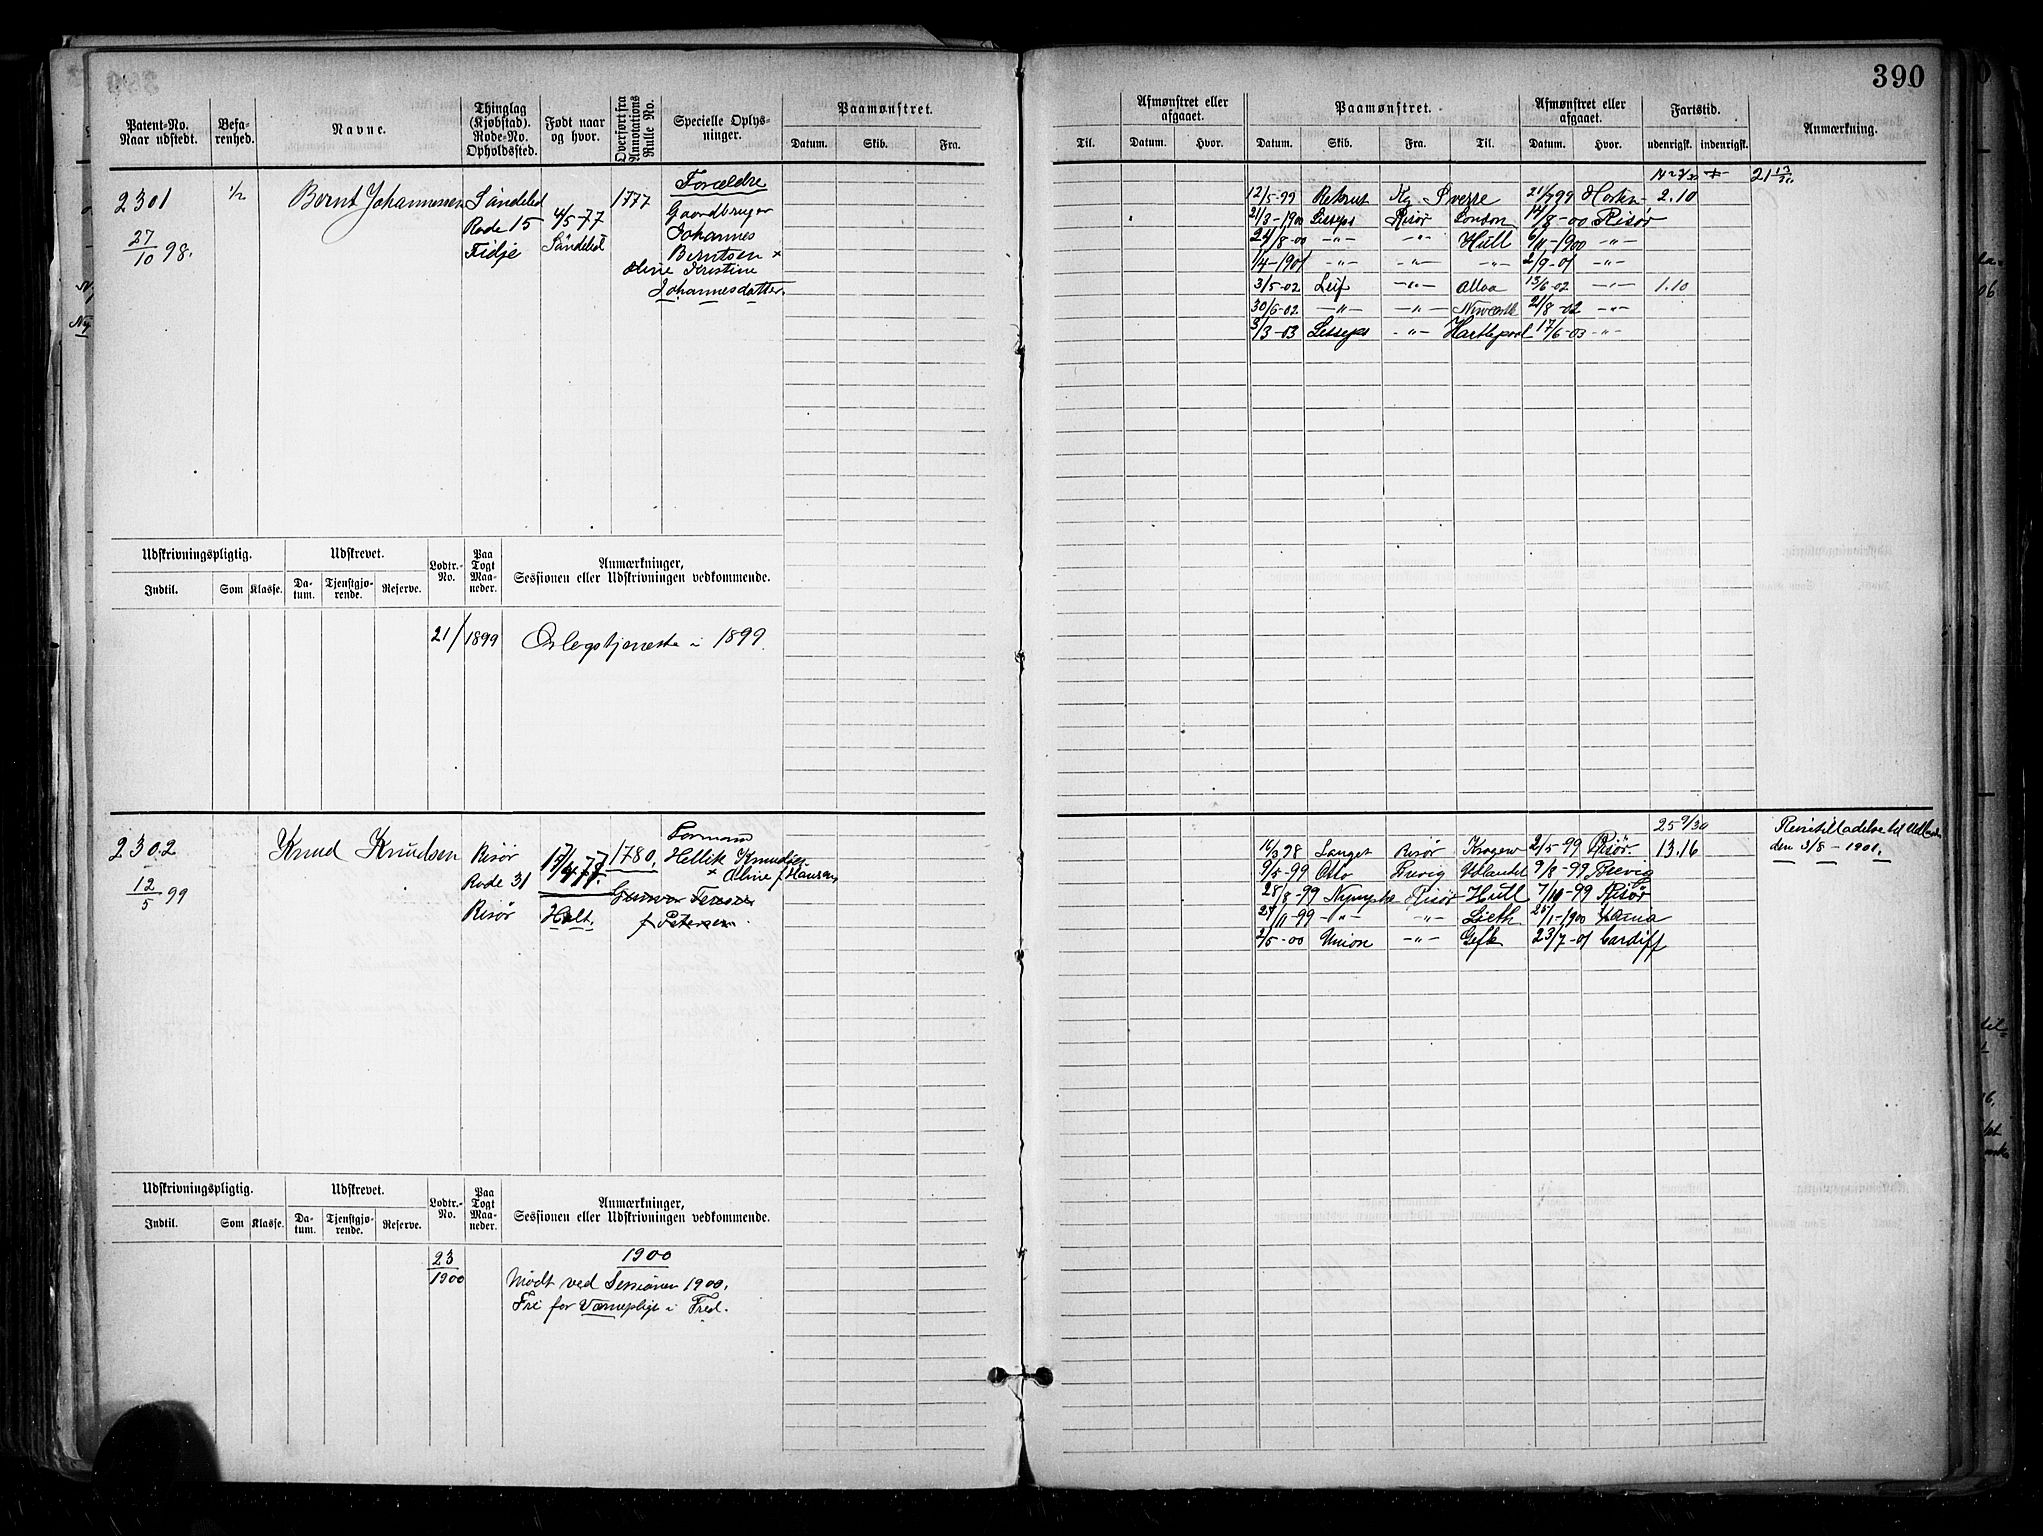 390
Patent-No. Naar udstedt.
Befarenhed.
Navne.
Thinglag (Kjøbstad). Rode-No. Opholdssted.
Født naar og hvor.
Overført fra Annotations Rulle No.
Specielle Oplysninger.
Paamønstret.
Datum. Skib. Fra.
Til.
Afmønstret eller afgaaet.
Datum. Hvor.
Paamønstret.
Datum. Skib. Fra. Til.
Afmønstret eller afgaaet.
Datum. Hvor.
Fartstid.
udenrigsk. indenrigsk.
Anmærkning.
2301
27/10 98.
1/2
Bernt Johannessen
Söndeled
Rode 15
Fidje
4/5-77
Söndeled
1777
Forældre
Gaardbruger
Johannes
Berntsen +
Oline Kirstine
Johannesdatter.
12/5-99 Rekrut Kg Sverre 21/7 99 Horten 2.10
21/3-1900 Lesseps Risör London 14/8-00 Risör
24/8-00 -"- -"- Hull 6/11-1900 -"-
1/4-1901 -"- -"- -"- 2/9-01 -"-
3/5-02 Leif -"- Alloa 13/6-02 -"- 1.10
30/6-02 -"- -"- 21/8-02 -"-
3/3-03 Lesseps -"- Hartlepool 17/6-03 -"-
Udskrivningspligtig.
Indtil. Som Klasse.
Udskrevet.
Datum. Tjenstgjørende. Reserve.
Lodtr.-No.
Paa Togt Maaneder.
Anmærkninger,
Sessionen eller Udskrivningen vedkommende.
21/1899
Oplagstjeneste i 1899.
2302
12/5 99
Knud Knudsen
Risør
Rode 31
Risør
17/4 77.
Holt.
1780.
Formand
Hellik Knudsen
+ Oline f Hansen
f Petersen.
25 9/30
16/3 98 Langet Risør Kragerø 2/5-99 Risør. 13.16
9/5-99 Otto Brevig Udlandet 9/8-99 Brevig
28/8-99 Nymphe Risør Hull 7/10-99 Risør
27/11-99 -"- -"- Lieth 25/1-1900
2/5-00 Union -"- Gefle 23/7-01 Cardiff
Reisetilladelse til Udlandet
den 3/8-1901.
Udskrivningspligtig.
Indtil. Som Klasse.
Udskrevet.
Datum. Tjenstgjørende. Reserve.
Lodtr.-No.
Paa Togt Maaneder.
Anmærkninger,
Sessionen eller Udskrivningen vedkommende.
23
1900
1900
Mødt ved Sessionen 1900.
Fri for Værnepligt i Fred.